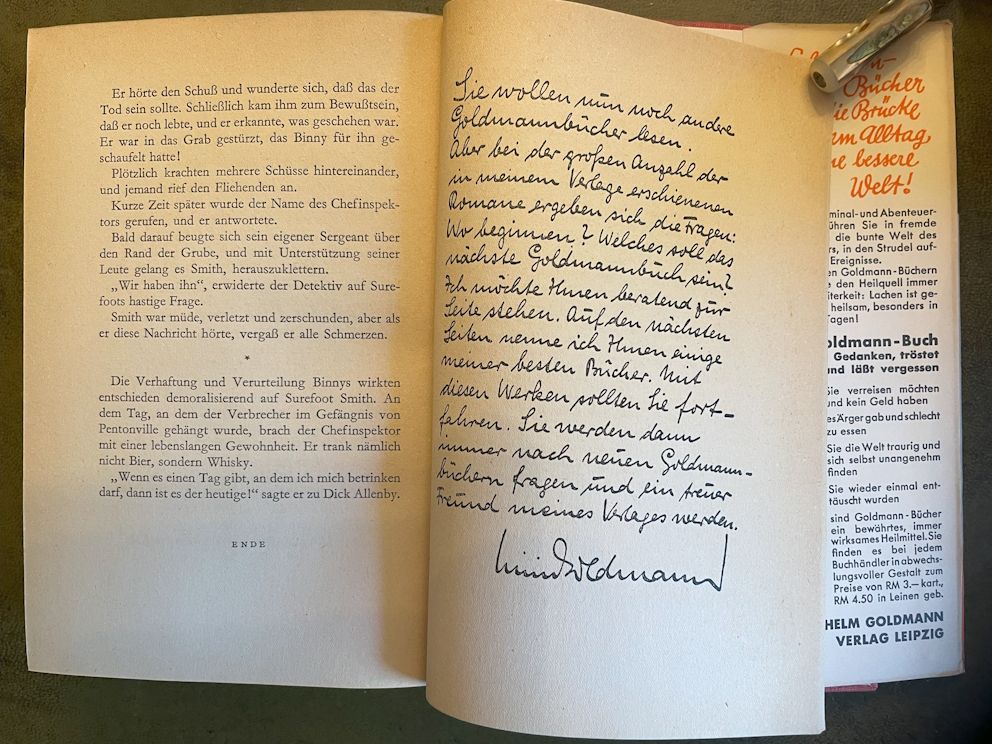 Er hörte den Schuß und wunderte sich, daß das der
Tod sein sollte. Schließlich kam ihm zum Bewußtsein,
daß er noch lebte, und er erkannte, was geschehen war.
Er war in das Grab gestürzt, das Binny für ihn ge-
schaufelt hatte!
Plötzlich krachten mehrere Schüsse hintereinander,
und jemand rief den Fliehenden an.
Kurze Zeit später wurde der Name des Chefinspek-
tors gerufen, und er antwortete.
Bald darauf beugte sich sein eigener Sergeant über
den Rand der Grube, und mit Unterstützung seiner
Leute gelang es Smith, herauszuklettern.
„Wir haben ihn“, erwiderte der Detektiv auf Sure-
foots hastige Frage.
Smith war müde, verletzt und zerschunden, aber als
er diese Nachricht hörte, vergaß er alle Schmerzen.
*
Die Verhaftung und Verurteilung Binnys wirkten
entschieden demoralisierend auf Surefoot Smith. An
dem Tag, an dem der Verbrecher im Gefängnis von
Pentonville gehängt wurde, brach der Chefinspektor
mit einer lebenslangen Gewohnheit. Er trank nämlich
nicht Bier, sondern Whisky.
„Wenn es einen Tag gibt, an dem ich mich betrinken
darf, dann ist es der heutige!“ sagte er zu Dick Allenby.
ENDE
Sie wollen nun noch andere
Goldmannbücher lesen.
Aber bei der großen Anzahl der
in meinem Verlage erschienenen
Romane ergeben sich die Fragen:
Wo beginnen? Welches soll das
nächste Goldmannbuch sein?
Ich möchte Ihnen beratend zur
Seite stehen. Auf den nächsten
Seiten nenne ich Ihnen einige
meiner besten Bücher. Mit
diesen Werken sollten Sie fort-
fahren. Sie werden dann
immer nach neuen Goldmann-
büchern fragen und ein treuer
Freund meines Verlages werden.
Goldmann
Bücher
die Brücke
Alltag
bessere
Welt!
minal- und Abenteuer-
ühren Sie in fremde
die bunte Welt des
rs, in den Strudel auf-
Ereignisse.
en Goldmann-Büchern
e den Heilquell immer
iterkeit: Lachen ist ge-
heilsam, besonders in
agen!
oldmann-Buch
Gedanken, tröstet
und läßt vergessen
Sie verreisen möchten
und kein Geld haben
es Ärger gab und schlecht
zu essen
Sie die Welt traurig und
sich selbst unangenehm
finden
Sie wieder einmal ent-
täuscht wurden
sind Goldmann-Bücher
ein bewährtes, immer
wirksames Heilmittel. Sie
finden es bei jedem
Buchhändler in abwechs-
lungsvoller Gestalt zum
Preise von RM 3.— kart.,
RM 4.50 in Leinen geb.
HELM GOLDMANN
VERLAG LEIPZIG